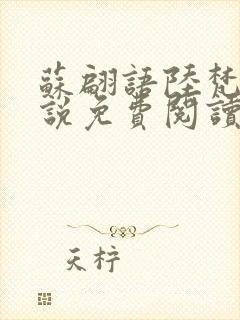 蘇翩語陸梵
說免費閱讀
天梓